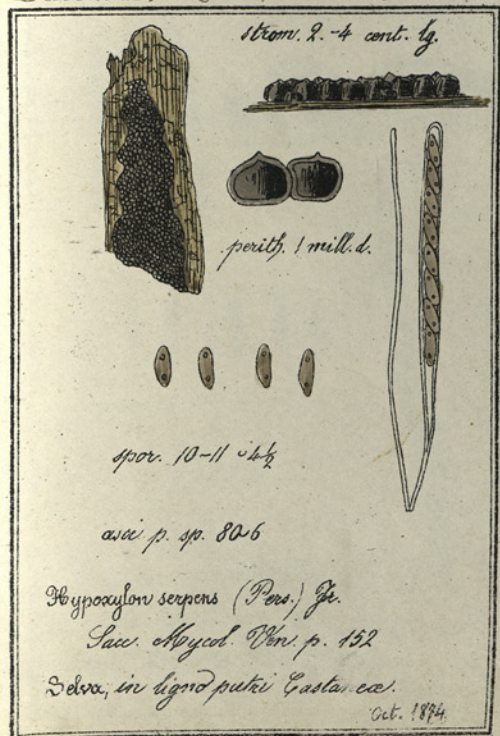 strom. 2.-4 cent. lg.
perith. 1 mill. d.
spor. 10-11 ᴗ 4½
asci p. sp. 80 ᴗ 6
Hypoxylon serpens (Pers.) Fr.
Sacc. Mycol. Ven. p. 152
Selva, in ligno putri Castaneæ.
Oct. 1874